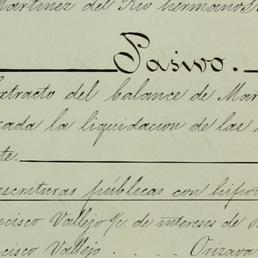 Martinez del Rio hermanos.
Pasivo.
Extracto del balance de Mar
cada la liquidacion de las
te.
escrituras públicas con hipo
ncisco Vallejo %c. de intereses de
ncisco Vallejo . . . . . Orizava